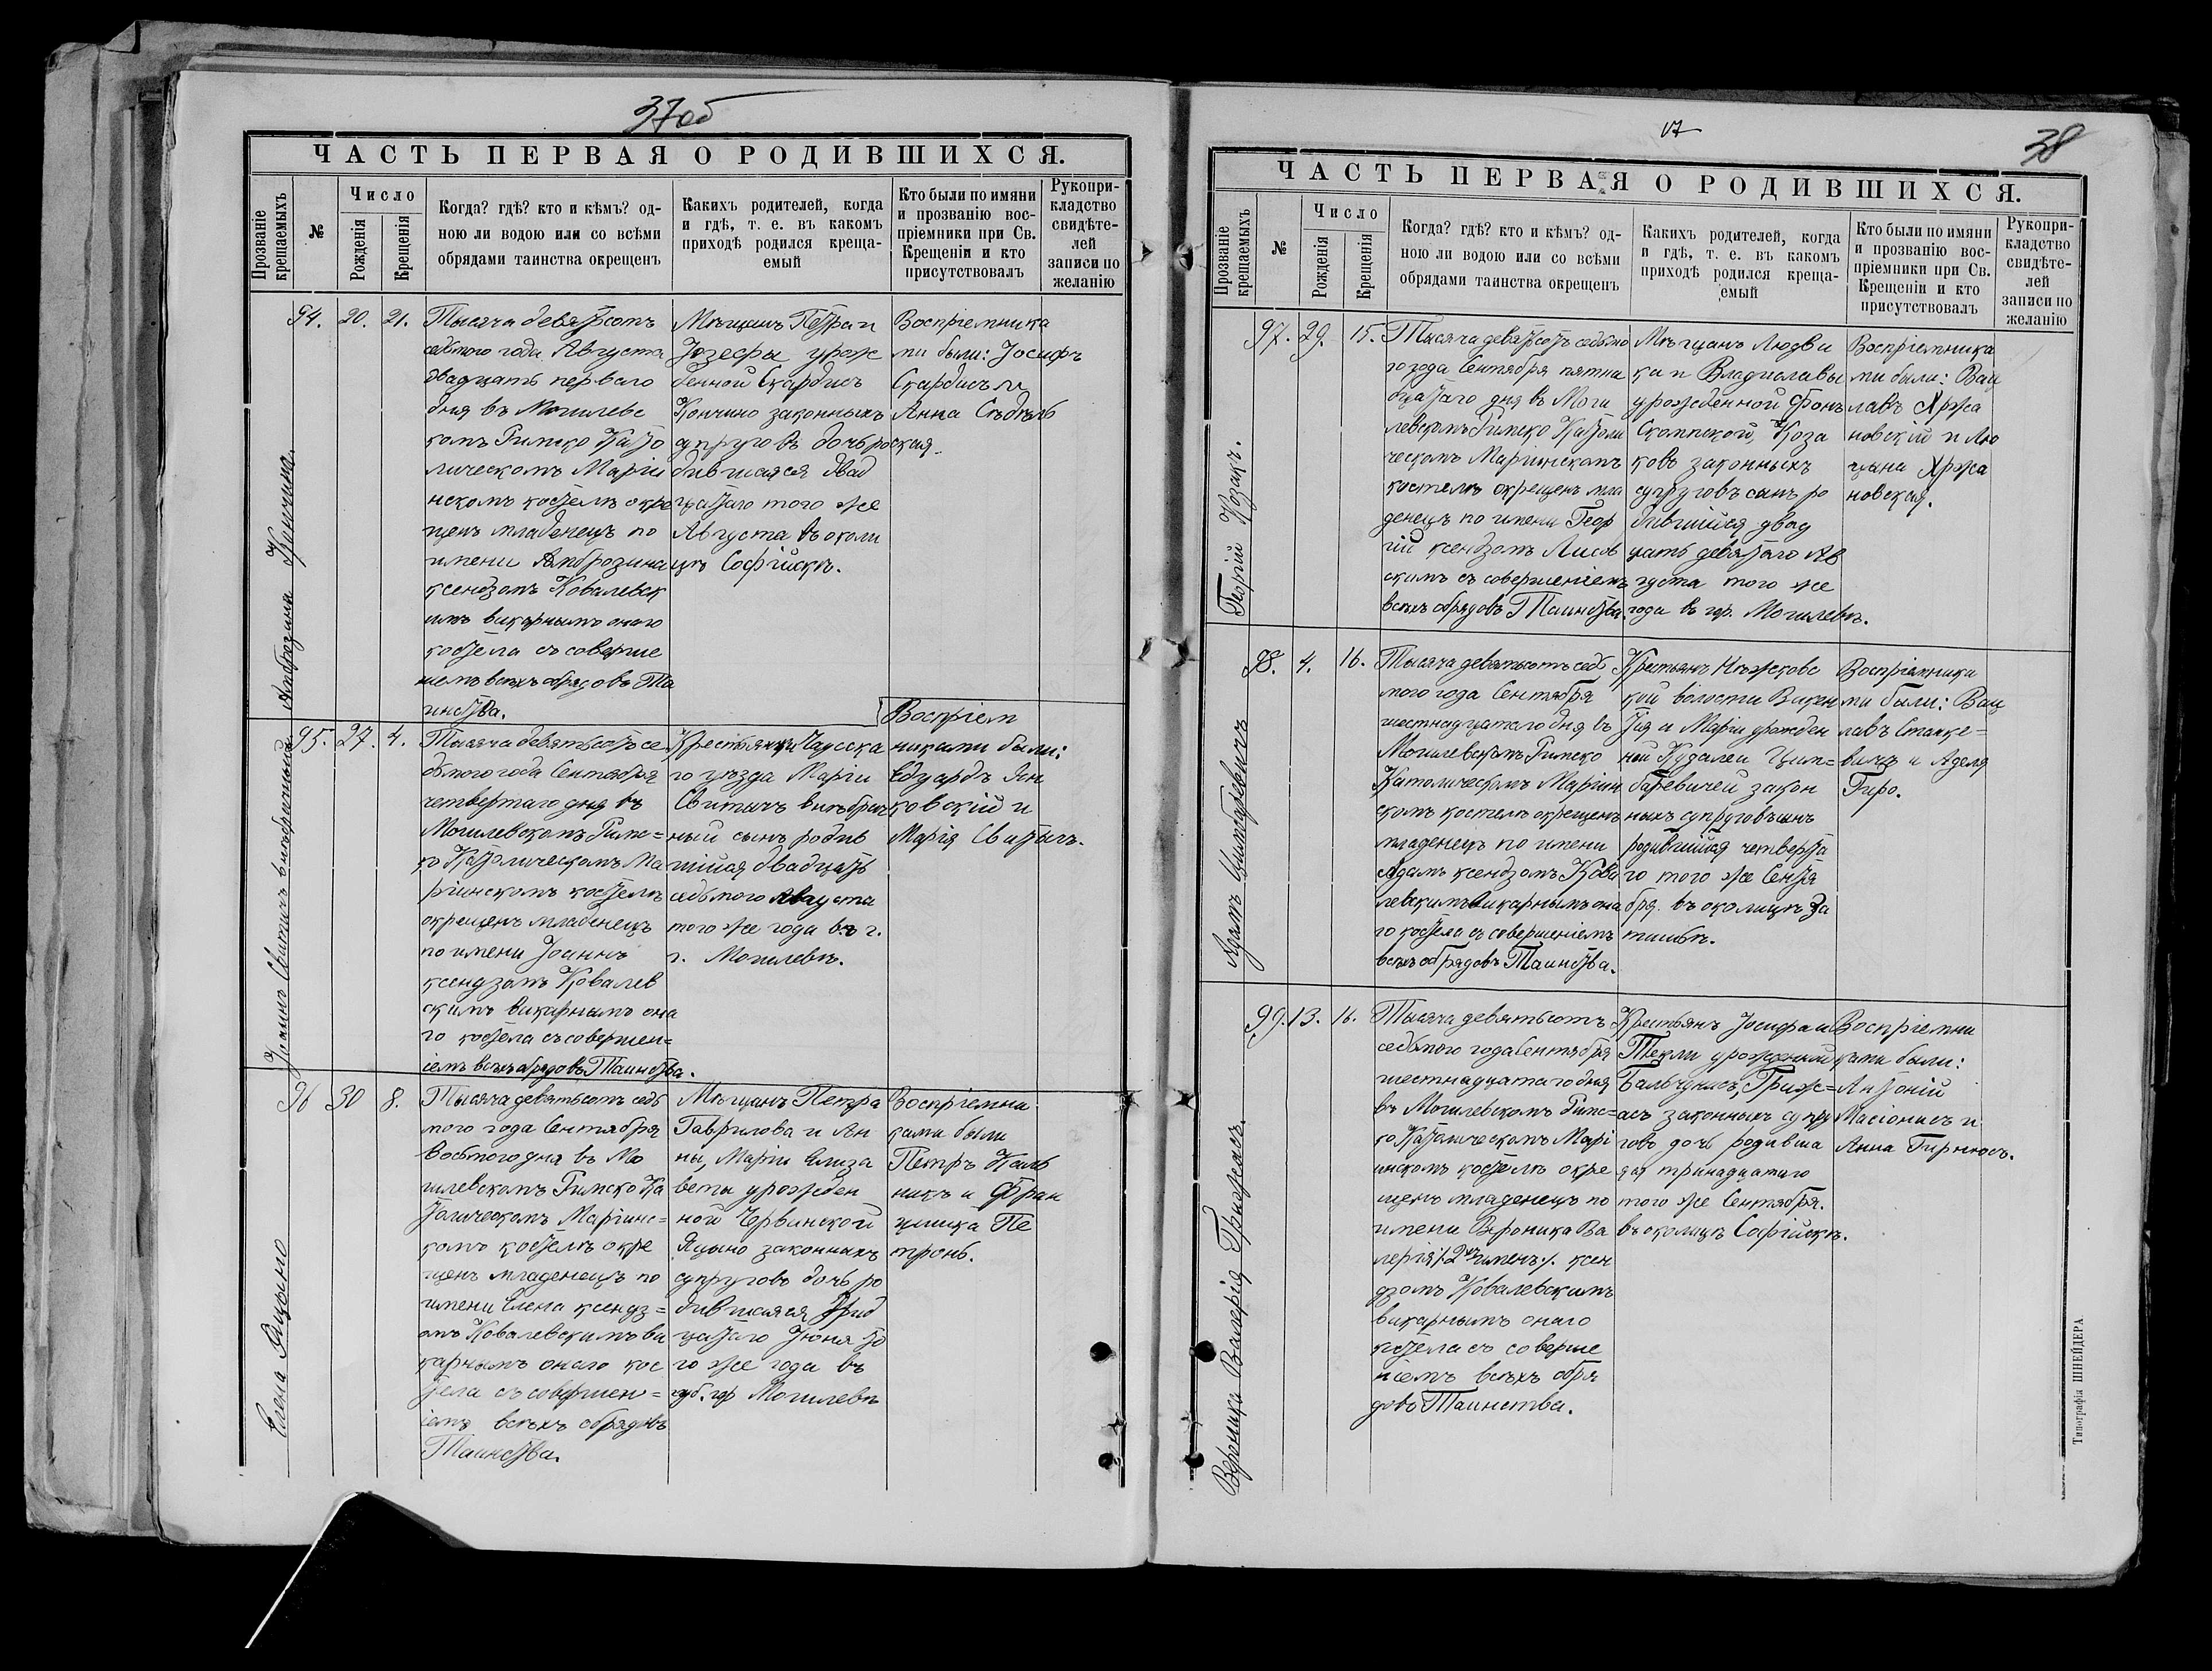 37об
ЧАСТЬ ПЕРВАЯ О РОДИВШИХСЯ.
Прозваніе крещаемыхъ
№
Число
Рожденія
Крещенія
Когда? гдѣ? кто и кѣмъ? од-
ною ли водою или со всѣми
обрядами таинства окрещенъ
Какихъ родителей, когда
и гдѣ, т. е. въ какомъ
приходѣ родился креща-
емый
Кто были по имяни
и прозванію вос-
пріемники при Св.
Крещеніи и кто
присутствовалъ
Рукопри-
кладство
свидѣте-
лей
записи по
желанію
Амброзина Кончино.
94. 20. 21.
Тысяча девятьсотъ
седьмого года Августа
двадцать перваго
дня въ Могилевс
комъ Римско Като
лическомъ Маріи
нскомъ костелѣ окре
щенъ младенецъ по
имени Амброзина
ксендзомъ Ковалевск
имъ викарнымъ онаго
костела съ соверше
ніемъ всѣхъ обрядовъ Та
инства.
Мѣщанъ Петра и
Іозефы урож
денной Скардисъ
Кончино законныхъ
супруговъ дочь ро
дившаяся двад
цатаго того же
Августа въ околи
цѣ Софійскѣ.
Воспріемника
ми были: Іосифъ
Скардисъ и
Анна Сѣдлѣв
ская.
Іоаннъ Свитичъ внѣбрачный
95. 27. 4.
Тысяча девятьсотъ се
дьмого года Сентября
четвертаго дня въ
Могилевскомъ Римс=
ко Католическомъ Ма
ріинскомъ костелѣ
окрещенъ младенецъ
по имени Іоаннъ
ксендзомъ Ковалев
скимъ викарнымъ она
го костела съ совершен=
іемъ всѣхъ обрядовъ Таинства.
Крестьянки Чаусска
го уѣзда Маріи
Свитичъ внѣбрач
ный сынъ родив
шійся двадцать
седьмого Августа
того же года въ г.
г. Могилевѣ.
Воспріем
никами были:
Эдуардъ Ян
ковскій и
Марія Свитичъ.
Елена Яцыно
96 30 8.
Тысяча девятьсотъ седь
мого года Сентября
восьмого дня въ Мо
гилевскомъ Римско Ка
толическомъ Маріинс=
комъ костелѣ окре
щенъ младенецъ по
имени Елена ксендз=
омъ Ковалевскимъ ви
карнымъ онаго кос
тела съ совершен=
іемъ всѣхъ обрядовъ
Таинства.
Мѣщанъ Петра
Гаврилова и Ан
ны, Маріи Елиза
веты урожден
ной Червинской
Яцыно законныхъ
супруговъ дочь ро
дившаяся трид
цатаго Іюня то
го же года въ
губ. гор Могилевѣ
Воспріемни
ками были
Петръ Каль
никъ и Фран
цишка Пе
тронь.
17
38
ЧАСТЬ ПЕРВАЯ О РОДИВШИХСЯ.
Прозваніе крещаемыхъ
№
Число
Рожденія
Крещенія
Когда? гдѣ? кто и кѣмъ? од-
ною ли водою или со всѣми
обрядами таинства окрещенъ
Какихъ родителей, когда
и гдѣ, т. е. въ какомъ
приходѣ родился креща-
емый
Кто были по имяни
и прозванію вос-
пріемники при Св.
Крещеніи и кто
присутствовалъ
Рукопри-
кладство
свидѣте-
лей
записи по
желанію
Георгій Козакъ.
97. 29. 15.
Тысяча девятьсотъ седьмо
го года Сентября пятна
дцатаго дня въ Моги
левскомъ Римско Католи
ческомъ Маріинскомъ
костелѣ окрещенъ мла
денецъ по имени Геор
гій ксендзомъ Лисов
скимъ съ совершеніемъ
всѣхъ обрядовъ Таинства.
Мѣщанъ Людви
ка и Владиславы
урожденной Фонъ
Скомпской, Коза
ковъ законныхъ
супруговъ сынъ ро
дившійся двад
цать девятаго Ав
густа того же
года въ гор. Могилевѣ.
Воспріемника
ми были: Вац
лавъ Хржа
новскій и Лю
цына Хржа
новская.
Адамъ Цимбаревичъ
98. 4. 16.
Тысяча девятьсотъ седь
мого года Сентября
шестнадцатаго дня въ
Могилевскомъ Римско
Католическомъ Маріин
скомъ костелѣ окрещенъ
младенецъ по имени
Адамъ ксендзомъ Кова
левскимъ викарнымъ она
го костела съ совершеніемъ
всѣхъ обрядовъ Таинства.
Крестьянъ Нѣжковс
кой волости Викен
тія и Маріи урожден
ной Кузалеи Цим=
баревичей закон
ныхъ супруговъ сынъ
родившійся четверта
го того же Сентя
бря. въ околицѣ За
тишьѣ.
Воспріемника
ми были: Вац
лавъ Станке=
вичъ и Аделя
Гиро.
Вероника Валерія Грижасъ.
99. 13. 16.
Тысяча девятьсотъ
седьмого года Сентября
шестнадцатаго дня
въ Могилевскомъ Римс=
ко Католическомъ Марі
инскомъ костелѣ окре
щенъ младенецъ по
имени Вероника Ва
лерія /2хъ именъ/. ксен
дзомъ Ковалевскимъ
викарнымъ онаго
костела съ соверше
ніемъ всѣхъ обря
довъ Таинства.
Крестьянъ Іосифа и
Текли урожденной
Бальчунисъ, Гриж=
асъ законныхъ супру
говъ дочь родивша
яся тринадцатаго
того же Сентября.
въ околицѣ Софійскѣ.
Воспріемни
ками были:
Антоній
Масіонисъ и
Анна Гирнюсъ.
Типографія ШНЕЙДЕРА